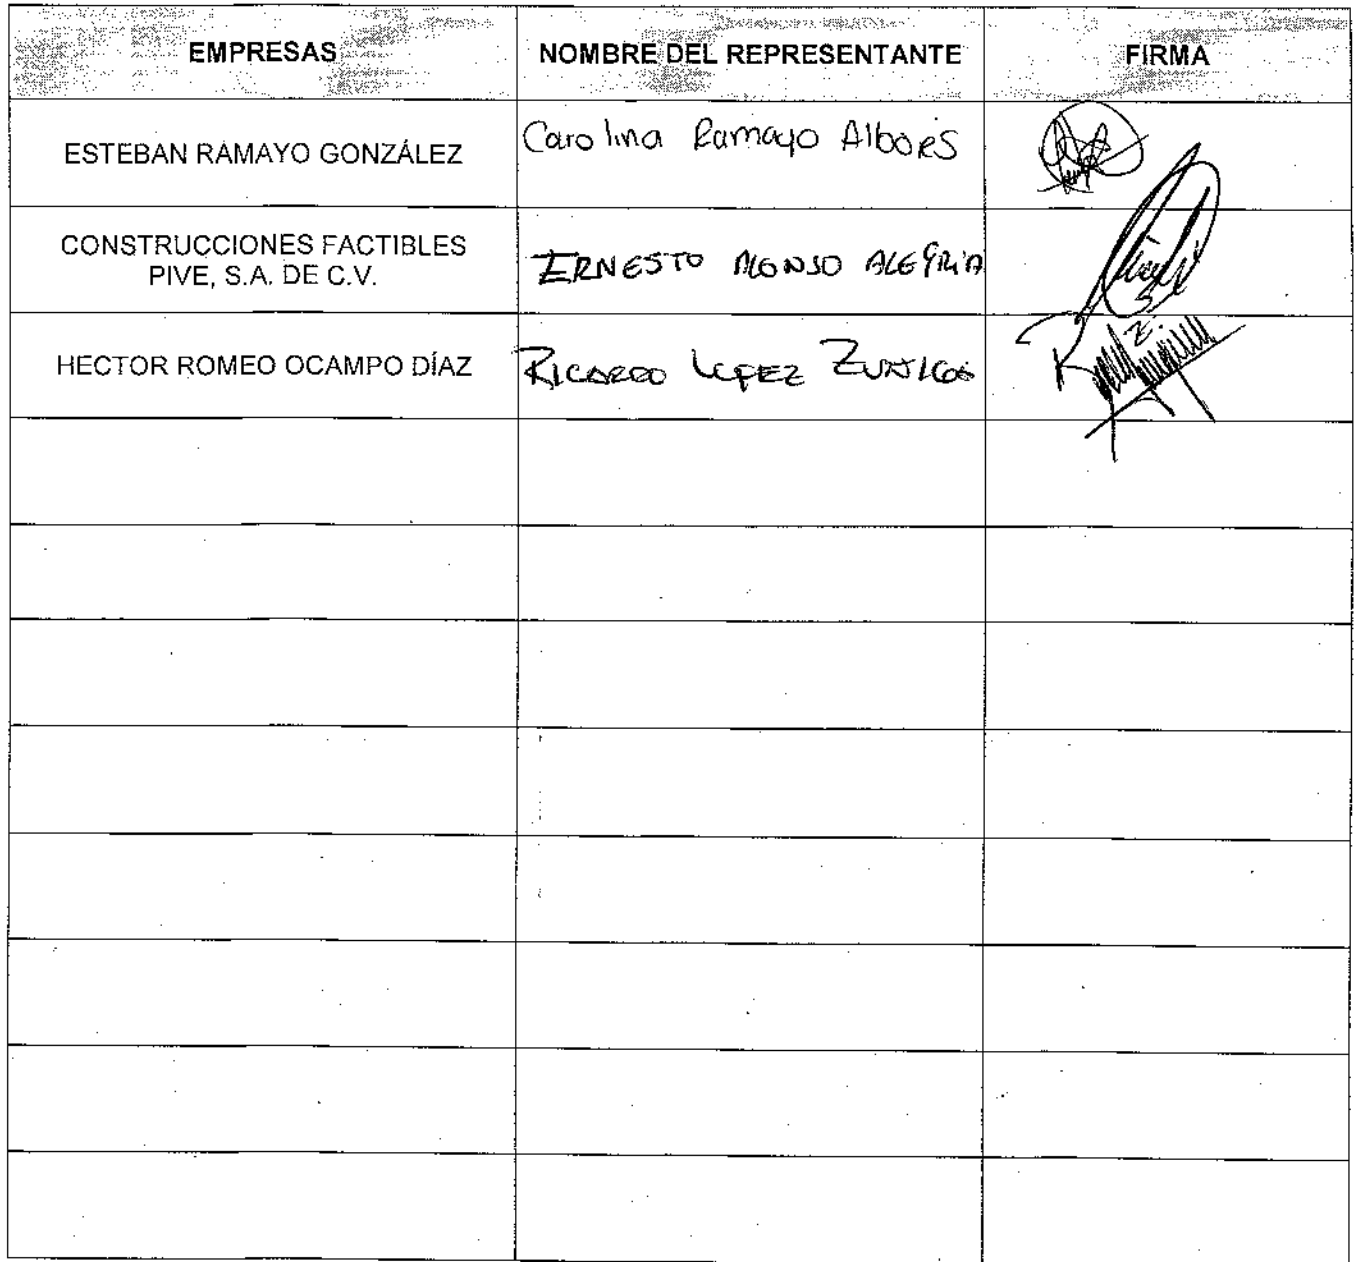 EMPRESAS
NOMBRE DEL REPRESENTANTE
FIRMA
ESTEBAN RAMAYO GONZÁLEZ
Carolina Ramayo Albores
CONSTRUCCIONES FACTIBLES
PIVE, S.A. DE C.V.
ERNESTO ALONSO ALEGRIA
HECTOR ROMEO OCAMPO DÍAZ
RICARDO LOPEZ ZUNIGA